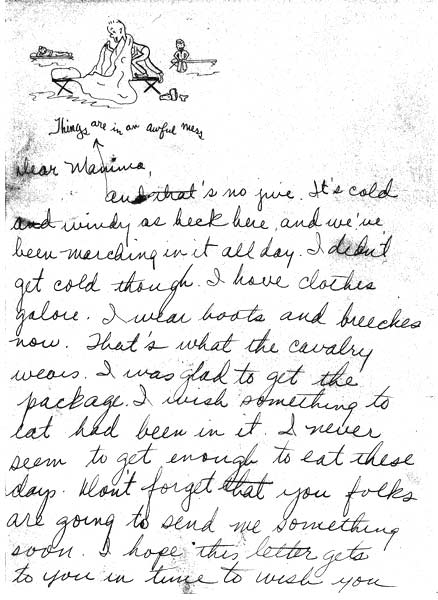 Things are in an awful mess
Dear Mamma,
and that's no jive. It's cold
and windy as heck here, and we've
been marching in it all day. I didn't
get cold though. I have clothes
galore. I wear boots and breeches
now. That's what the cavalry
wears. I was glad to get the
package. I wish something to
eat had been in it. I never
seem to get enough to eat these
days. Don't forget that you folks
are going to send me something
soon. I hope this letter gets
to you in time to wish you